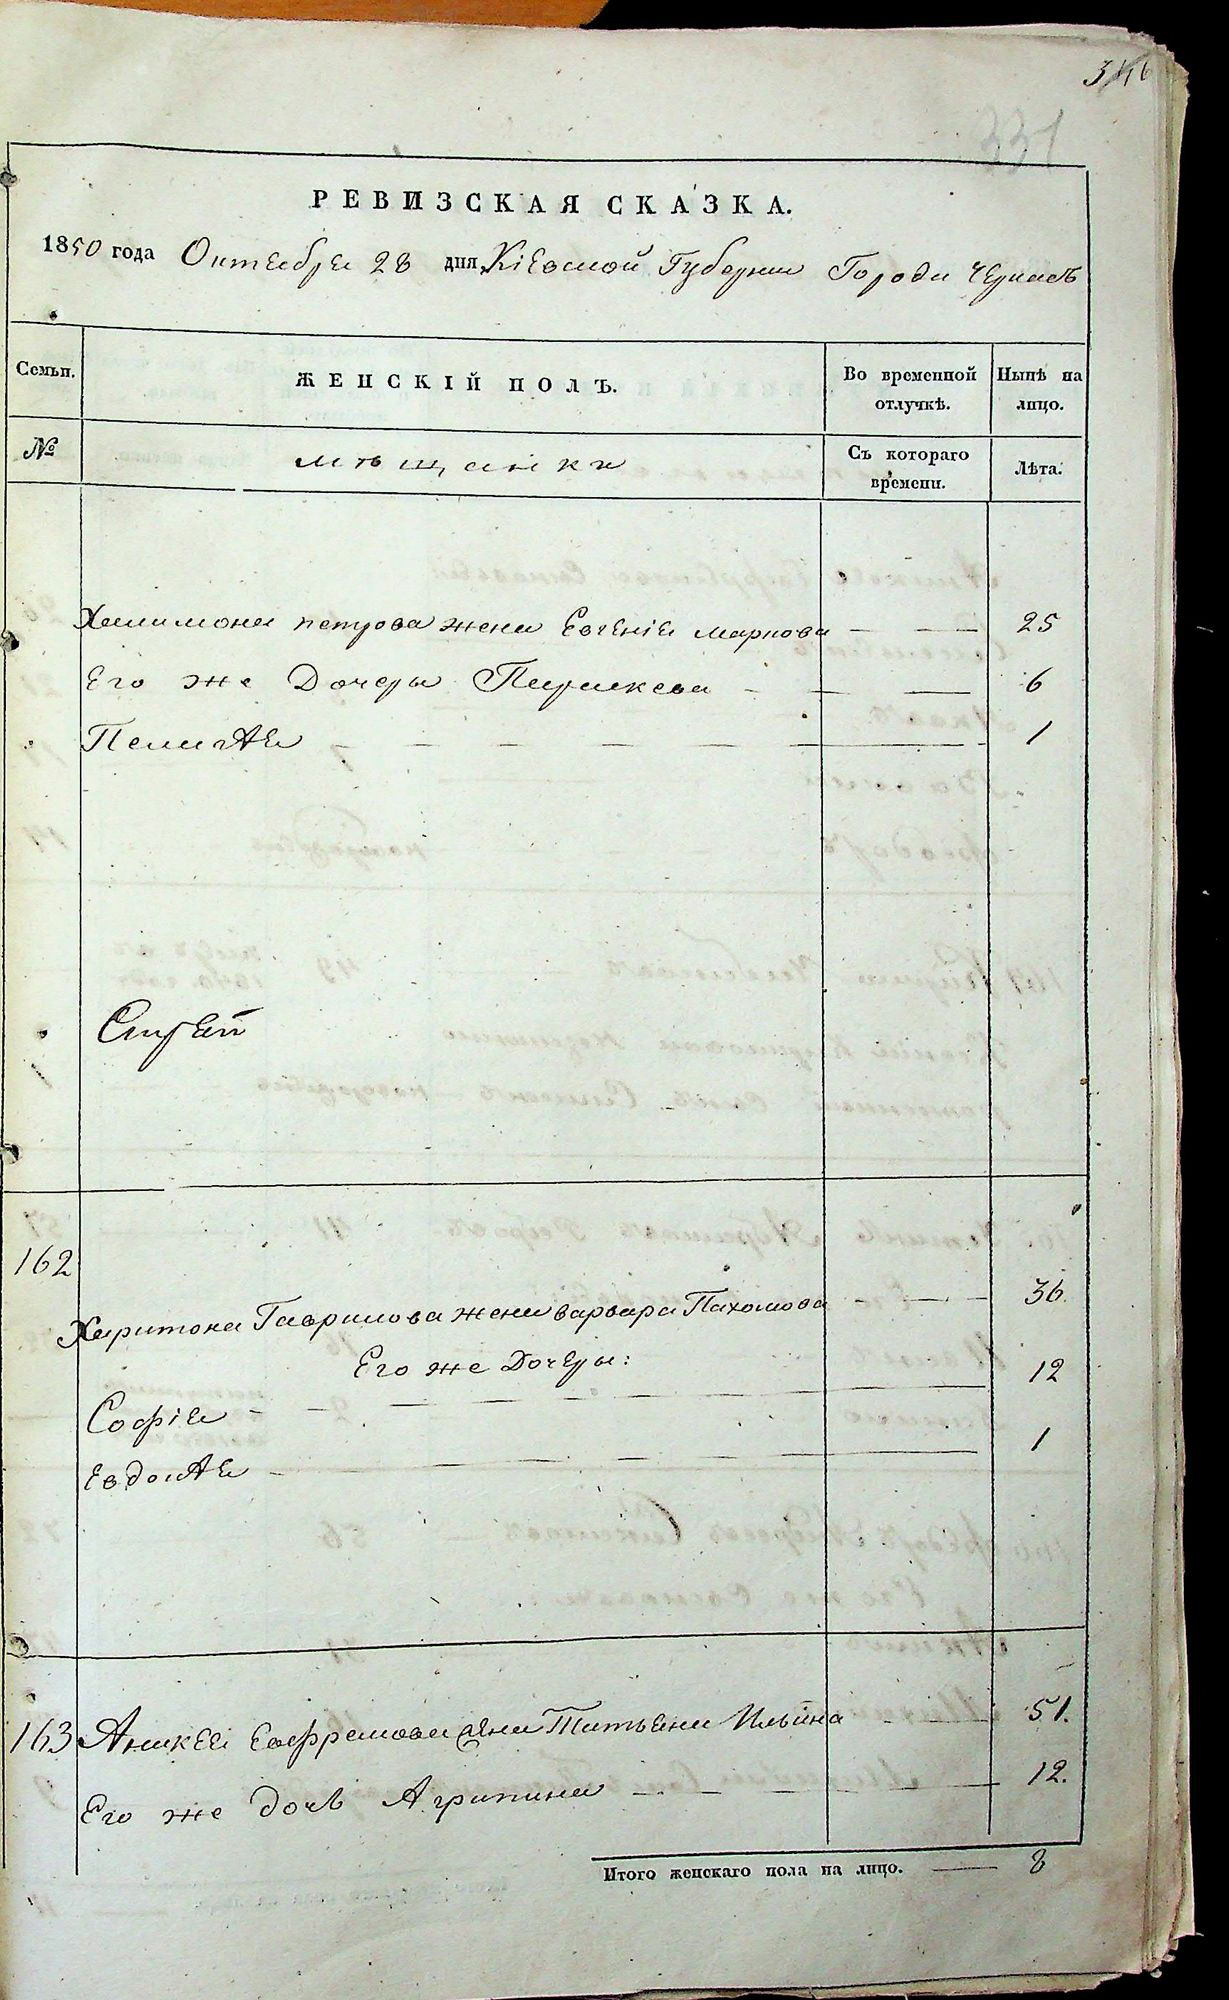 346
331
РЕВИЗСКАЯ СКАЗКА.
1850 года Октебре 28 дня Кіевской Губернии Города Черкасъ
Семьи. ЖЕНСКІЙ ПОЛЪ. Во временной отлучкѣ. Нынѣ на лицо.
№ мѣщанки Съ котораго времени. Лѣта.
Халимона петрова жена Евгеніе маркова 25
Его же Дочеры Параскева 6
Пелагѣе 1
162
Харитона Гаврилова жена варвара Пахомова 36.
Его же Дочеры: 12
Софіе
Евдокѣе 1
163 Аникее Ефремова жена Татьена Ильина 51.
Его же дочь Агрипина 12.
Итого женскаго пола на лицо. 8